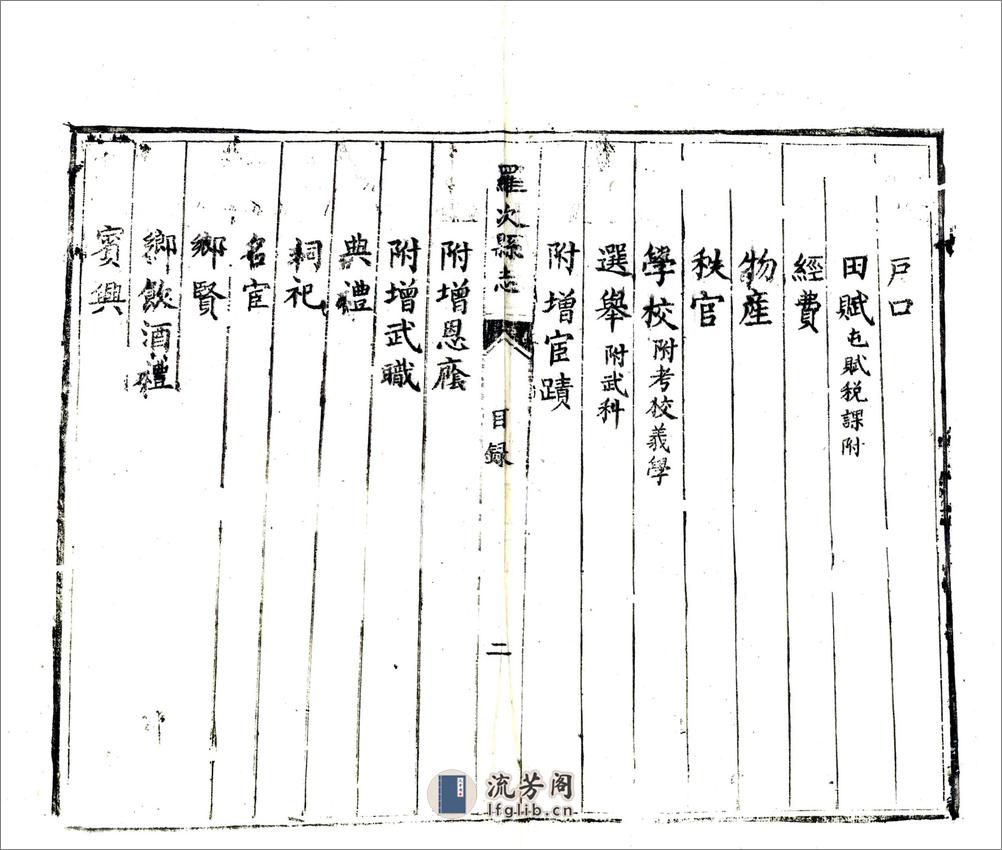 戶口
田賦 屯賦稅課附
經費
物產
秩官
學校 附考校義學
選舉 附武科
附增宦蹟
羅次縣志 目録 二
附增恩廕
附增武職
典禮
祠祀
名宦
鄉賢
鄉飲酒禮
賓興
流芳阁
lfglib.cn